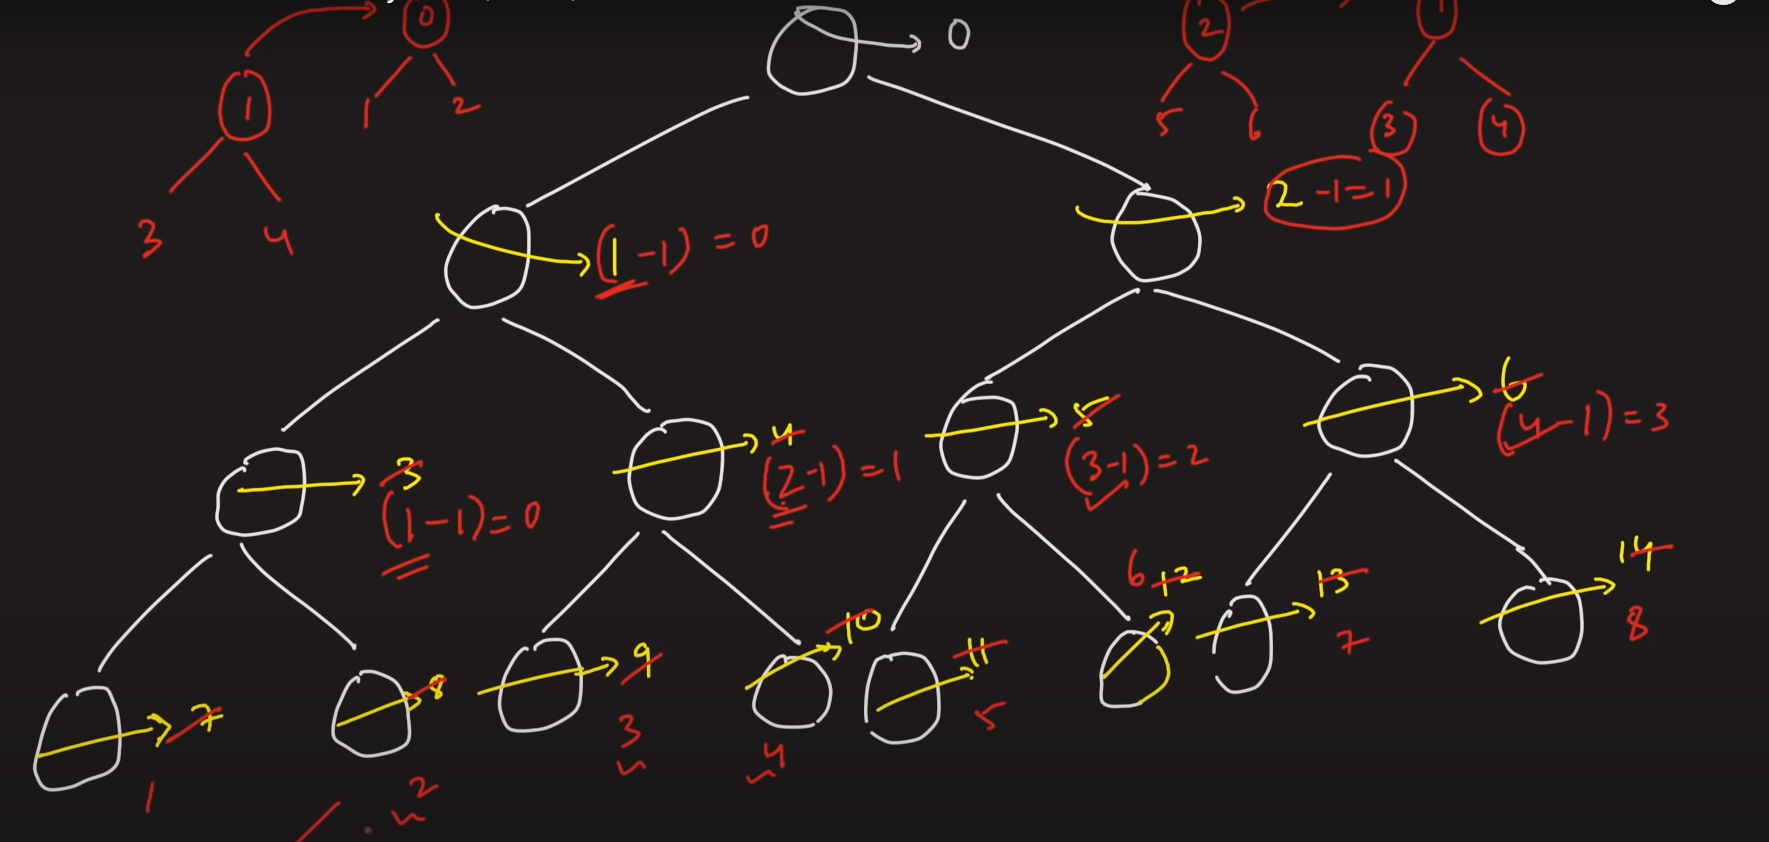 0
1
2
1
3
4
0
2
5
6
1
3
4
(1-1) = 0
2 -1=1
3
(1-1)=0
4
(2-1)=1
5
(3-1)=2
6
(4-1)=3
7
1
8
2
9
3
10
4
11
5
12
6
13
7
14
8